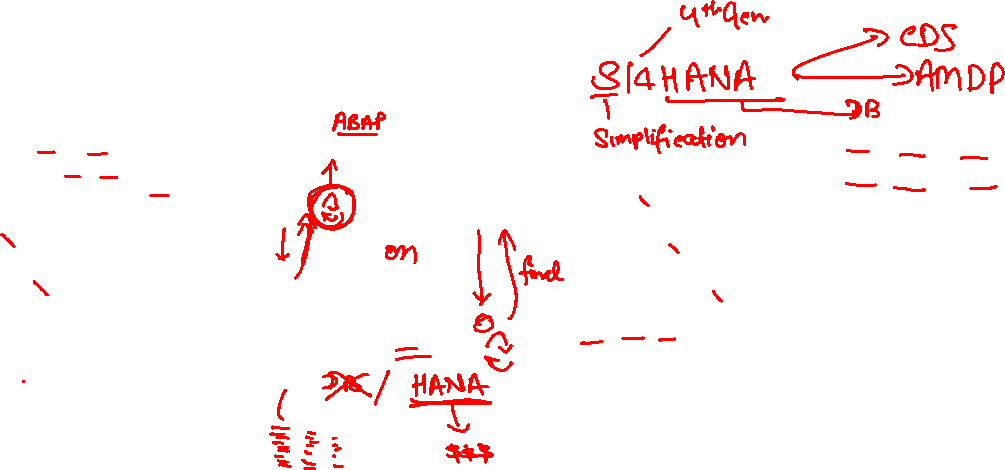 4th Gen
S/4HANA
CDS
AMDP
DB
Simplification
ABAP
on
final
/ HANA
$$$